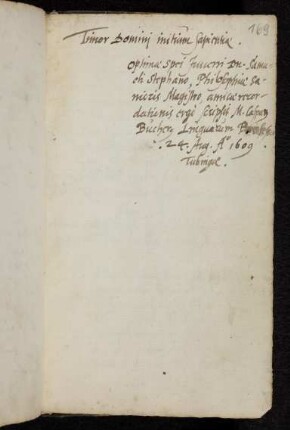 169
Timor Domini initium Sapientiæ.
Optimæ Spei Juveni Dn.
oh Stephano, Philosophiæ
Magistro, amicæ recor-
dationis ergò scripsit M. Caspar
Bucher, Linguarum
24. Aug. Aº 1609
Tubingæ.